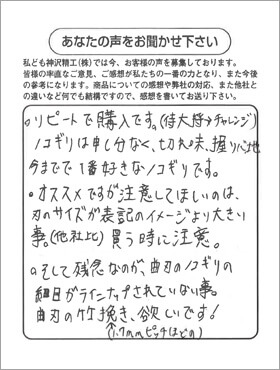 あなたの声をお聞かせ下さい
私ども神沢精工(株)では今、お客様の声を募集しております。
皆様の率直なご意見、ご感想が私たちの一番の力となり、また今後
の参考になります。商品についての感想や弊社の対応、また他社と
の違いなど何でも結構ですので、感想を書いてお送り下さい。
○リピートで購入です。(侍大将→チャレンジ)
ノコギリは申し分なく、切れ味、握り心地
今までで1番好きなノコギリです。
○オススメですが注意してほしいのは、
刃のサイズが表記のイメージより大きい
事。(他社比) 買う時に注意。
○そして残念なのが、曲刃のノコギリの
細目がラインナップされていない事。
曲刃の竹挽き、欲しいです!
(1.7mmピッチほどの)